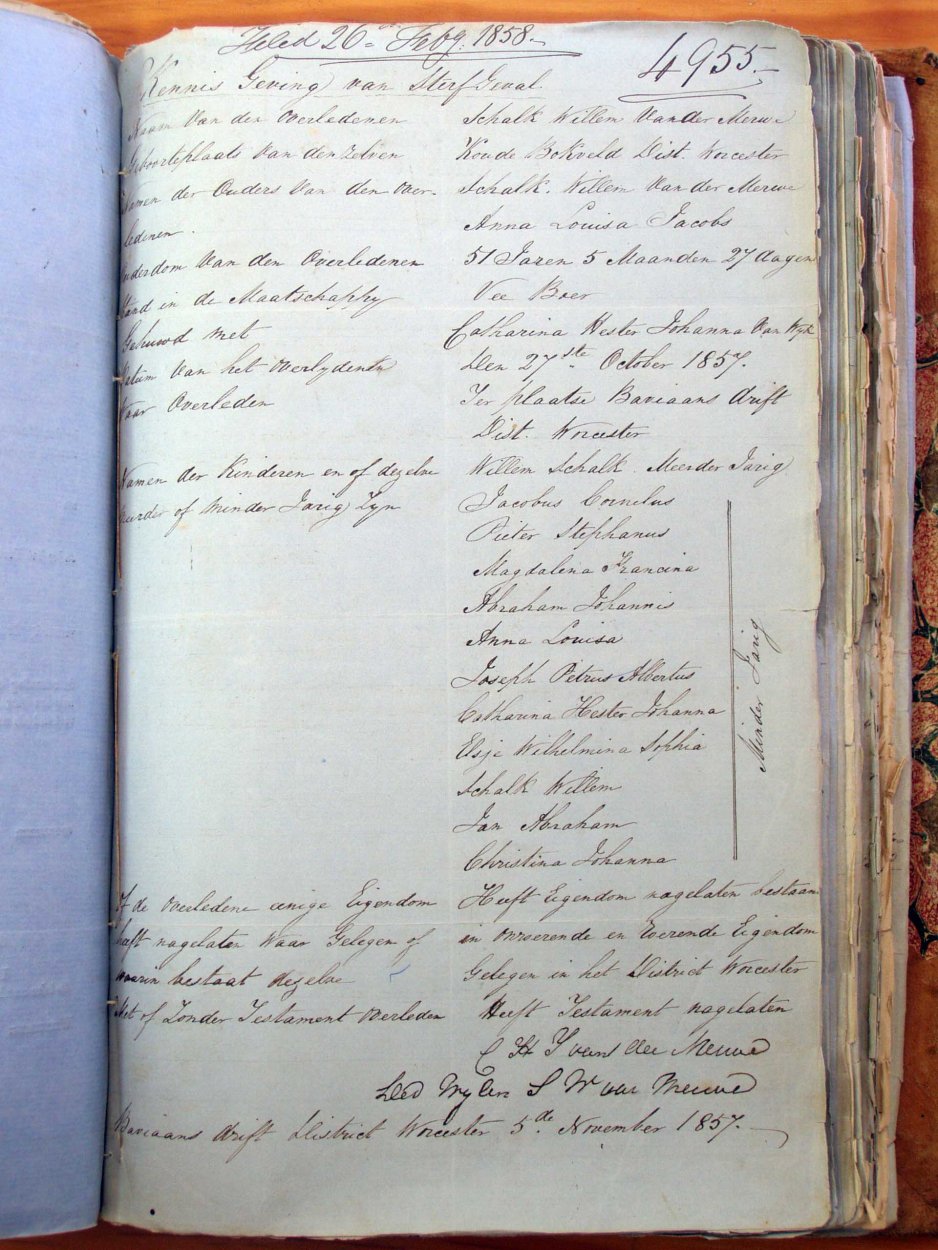 Filed 26 Feby. 1858.
4955.
Kennis Geving van Sterf Geval
Naam Van den Overledenen Schalk Willem Vander Merwe
Geboorteplaats Van denzelven Koude Bokveld Dist. Worcester
Namen der Ouders Van den Over- Schalk. Willem Van der Merwe
ledenen. Anna Louisa Jacobs
Ouderdom Van den Overledenen 51 Jaren 5 Maanden 27 dagen
Stand in de Maatschappy Vee Boer
Gehuwd met Catharina Hester Johanna Van Wyk
Datum van het Overlydenen Den 27ste October 1857.
Waar Overleden Ter plaatse Baviaans drift
Dist. Worcester
Namen der Kinderen en of dezelve Willem Schalk. Meerder Jarig
Meerder of Minder Jarig Zyn Jacobus Cornelus
Pieter Stephanus
Magdalena Francina
Abraham Johannis
Anna Louisa
Joseph Petrus Albertus
Catharina Hester Johanna
Elsje Wilhelmina Sophia
Schalk Willem
Jan Abraham
Christina Johanna
Minder Jarig
If de Overledene eenige Eigendom Heeft Eigendom nagelaten bestaan
heeft nagelaten Waar Gelegen of in Onroerende en Roerende Eigendom
waarin bestaat dezelve Gelegen in het District Worcester
Met of Zonder Testament Overleden Heeft Testament nagelaten
C H J vans der Merwe
Wed Wylen S W van Merwe
Baviaans drift District Worcester 5de November 1857.